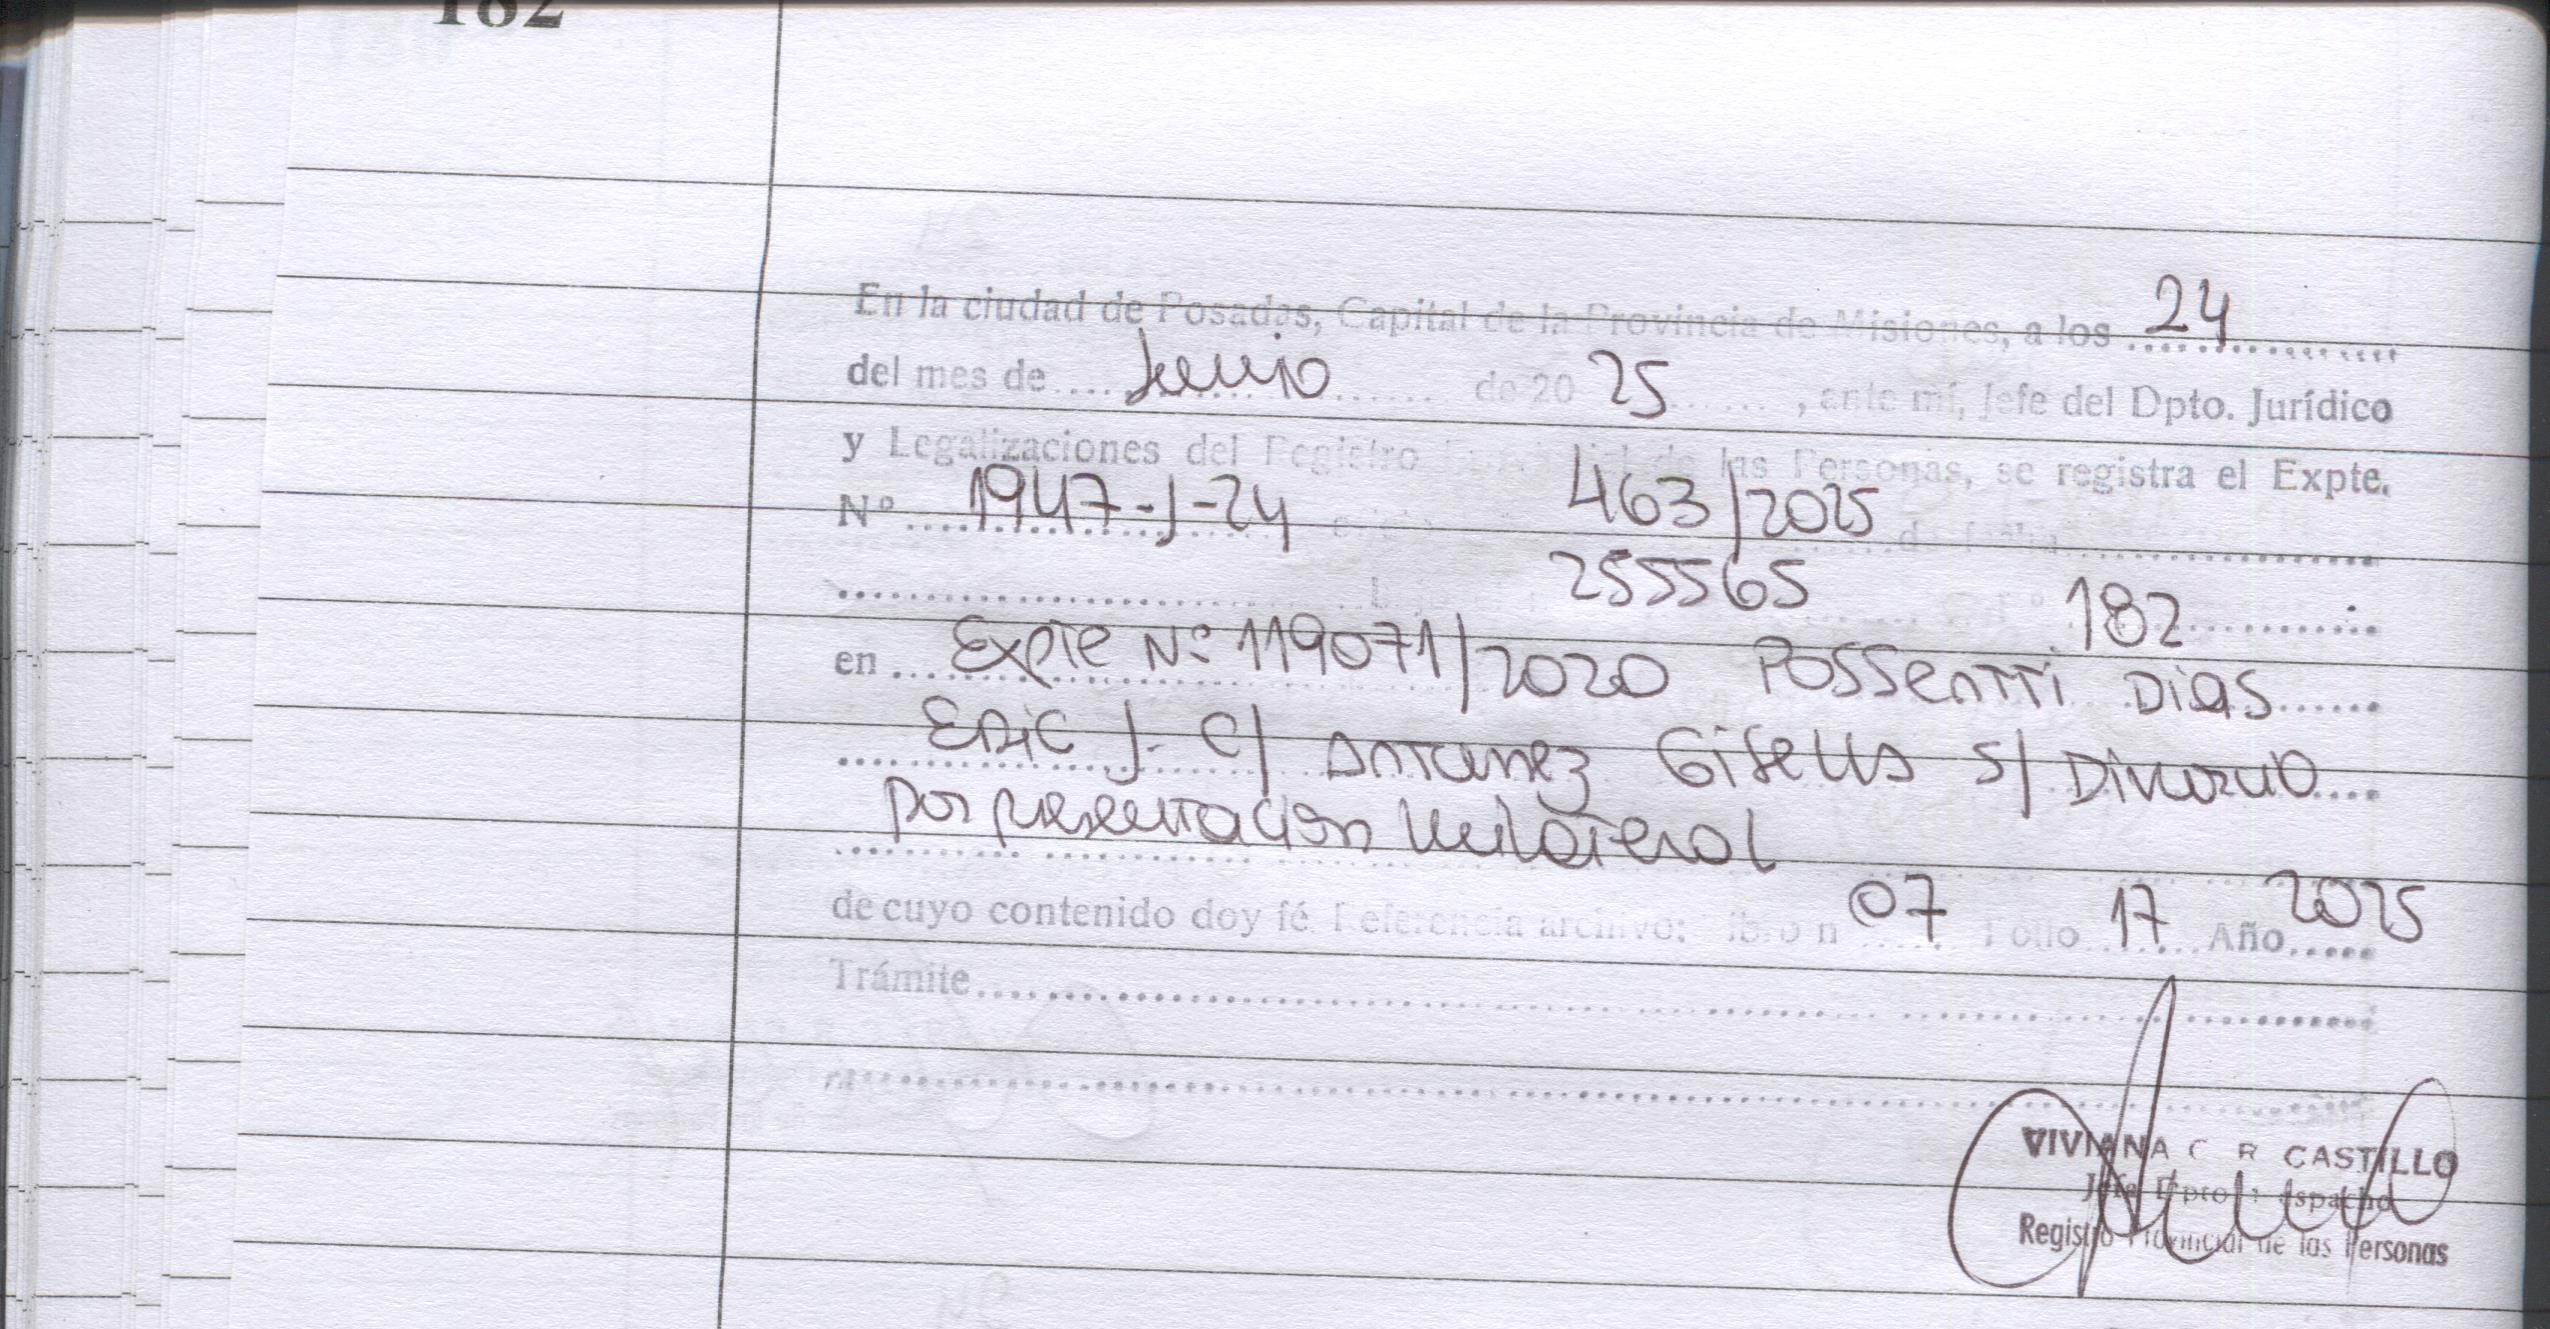 182
En la ciudad de Posadas, Capital de la Provincia de Misiones, a los 24
del mes de Junio de 20 25, ante mí, Jefe del Dpto. Jurídico
y Legalizaciones del Registro de las Personas, se registra el Expte.
Nº 1947-J-24 463/2025 de fecha
255565 182
en Expte Nº 119071/2020 Possentti Dias
Eric J. c/ Antunez Gisella s/ Divorcio
por presentacion Unilateral
de cuyo contenido doy fé. Referencia archivo: libro n 07 Folio 17 Año 2025
Trámite
VIVIANA C R CASTILLO
Jefe Dpto Despacho
Registro Provincial de las Personas